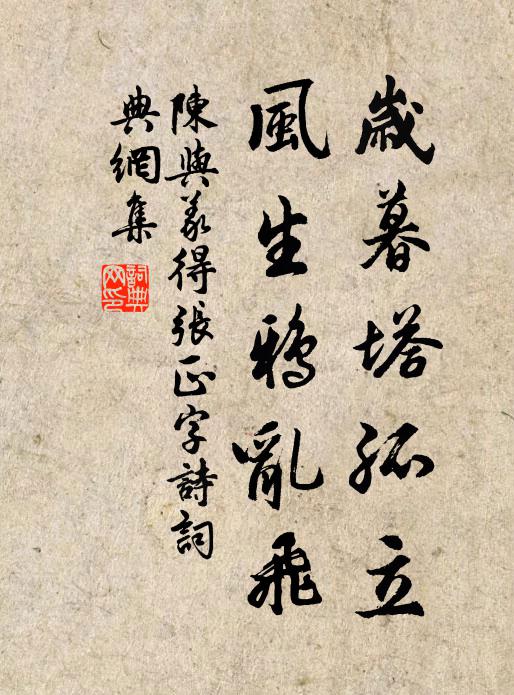 歲暮塔孤立
風生鴉亂飛
陳與義得張正字詩詞
典網集
詞典網印